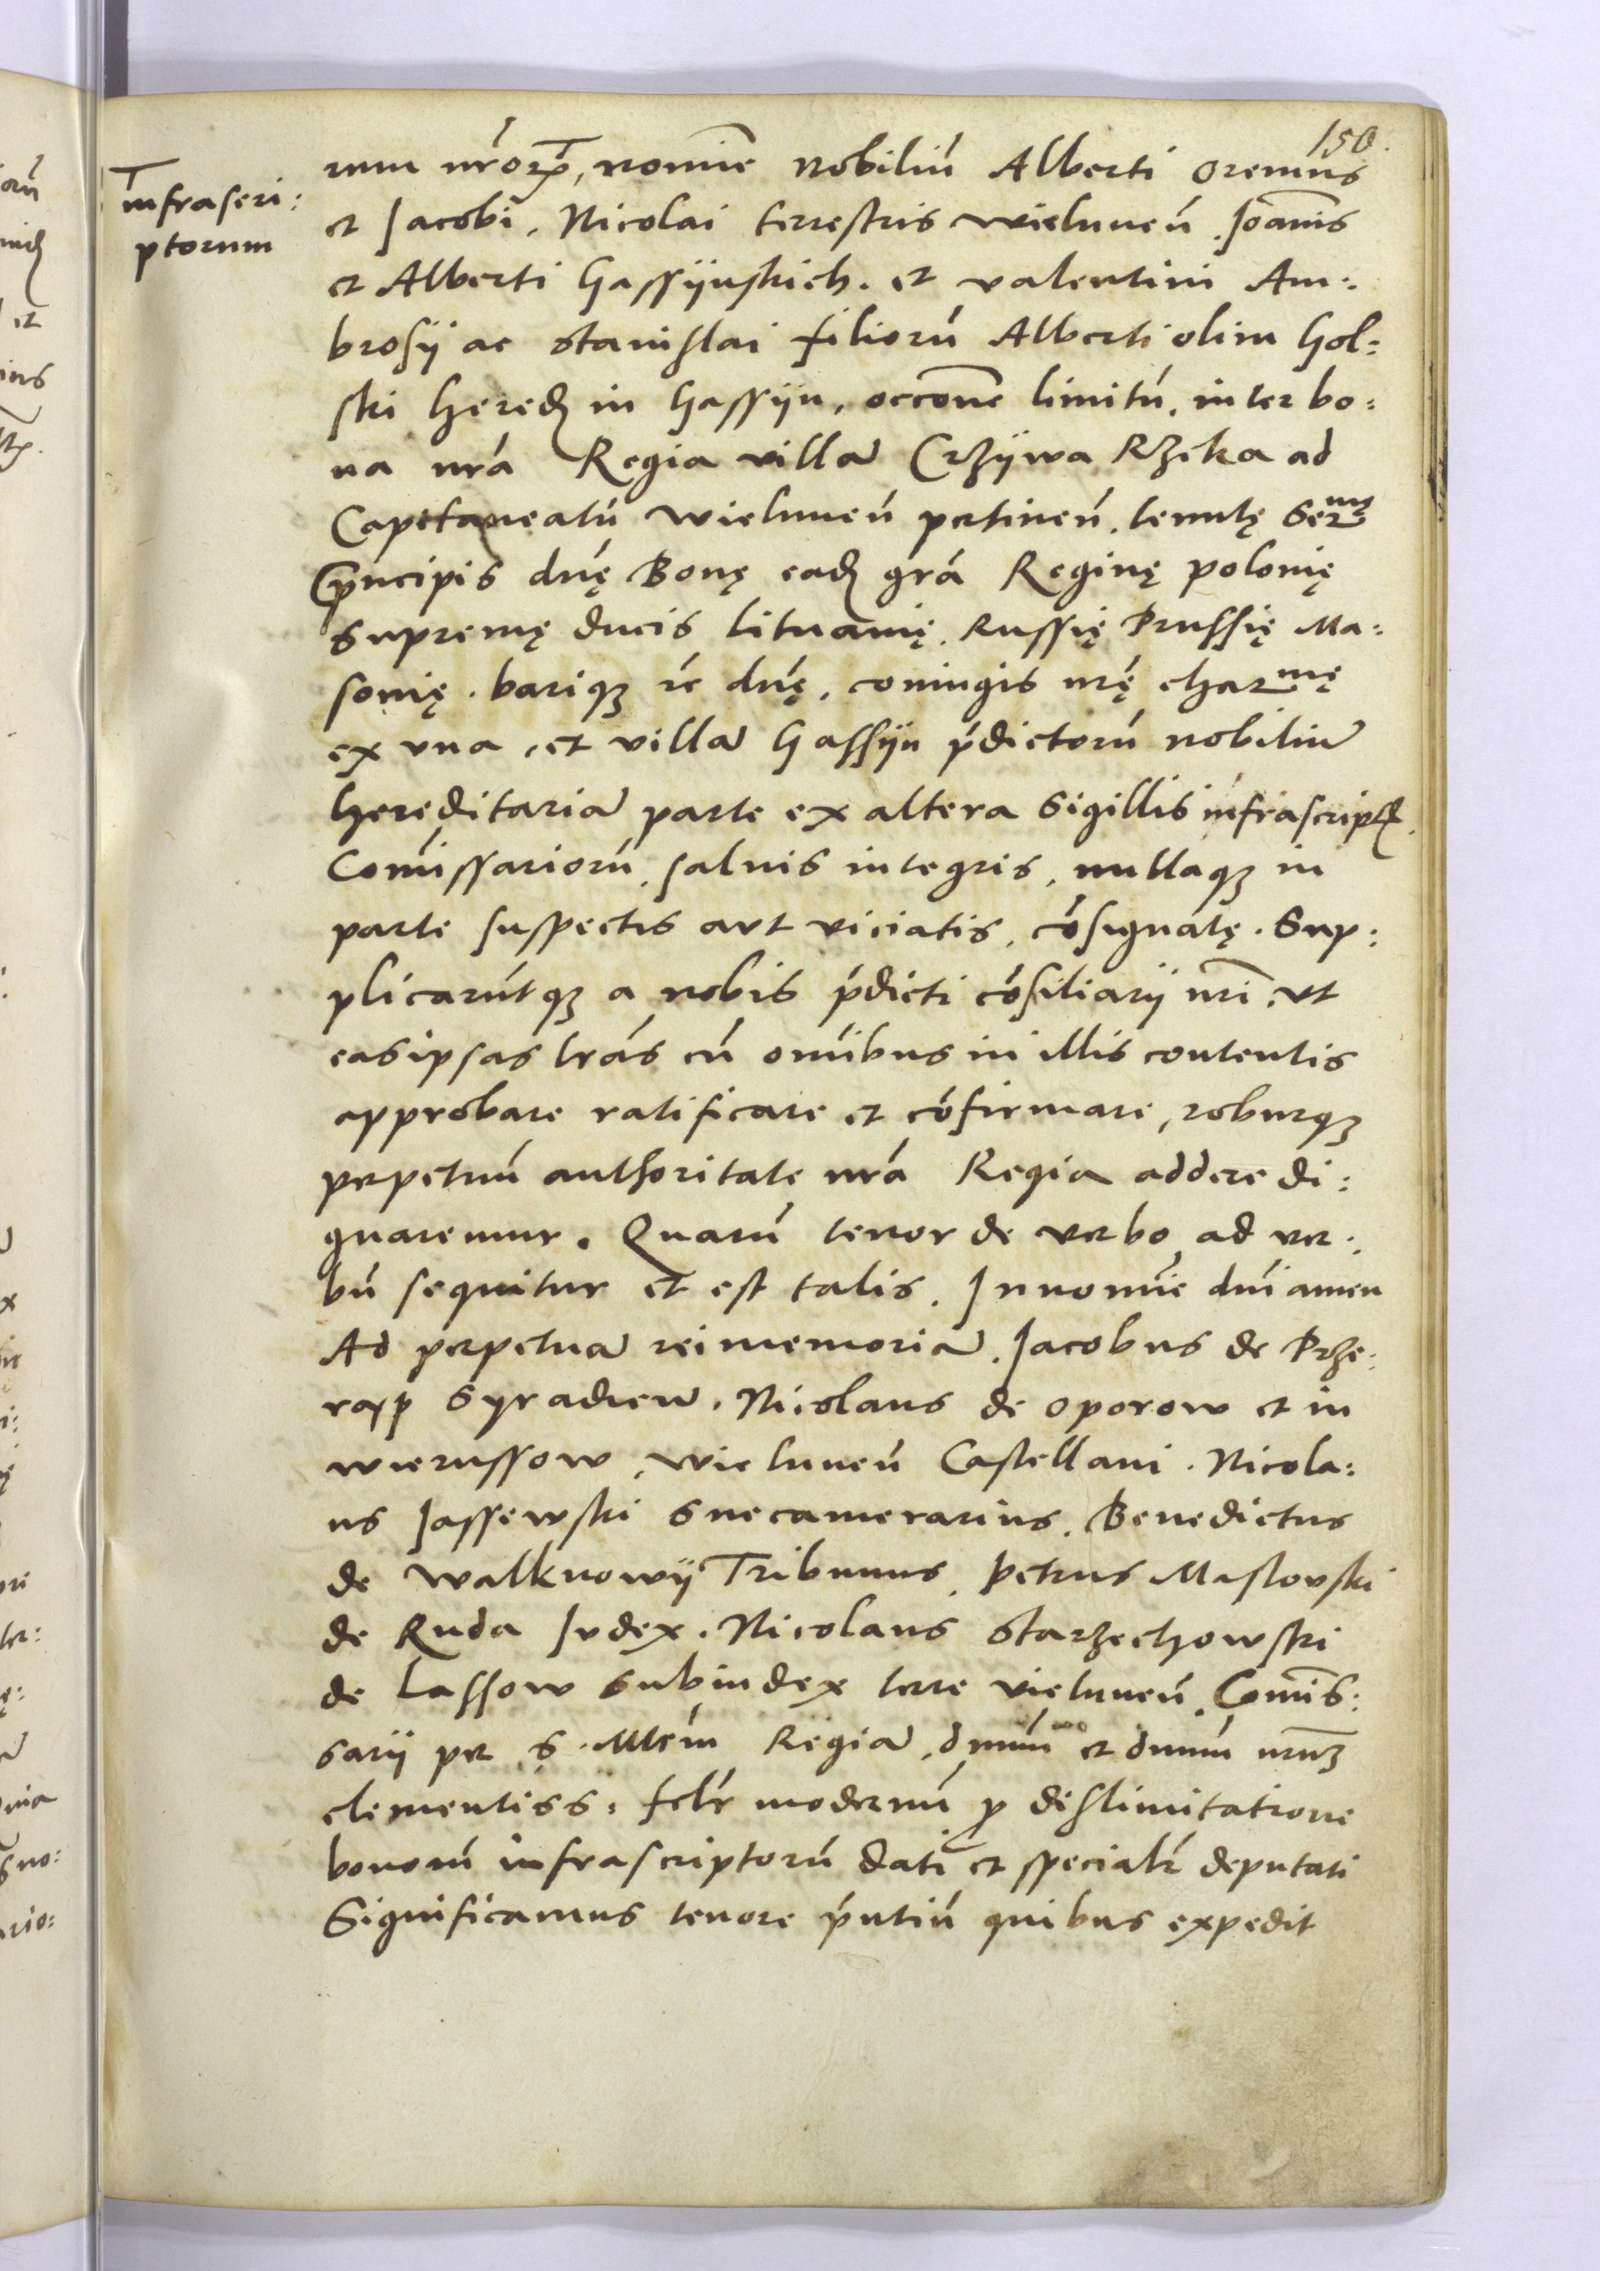 150.
infrascri:
ptorum
rum nrōꝝ, nomīe Nobiliū Alberti Oremus
et Jacobi, Nicolai terrestris wielunen̄. Joānnis
et Alberti Gassijnskich. et valentini Am:
brosij ac Stanislai filiorū Alberti olim Gol:
ski hered in Gassijn, occōne limitū, inter bo:
na nrā Regia villā Crzijwa Rzeka ad
Capitaneatū wielunen̄ pertinen̄, tenutę Ser᷑mę
Principis dnę Bonę eadē grā Reginę polonię
Supremę ducis lituanię, Russię Prussię Ma:
sonię, bariqꝫ rc̄ dnę, coniugis nrę charmę
ex vna, et villā Gassijn pdictorū nobiliū
hereditariā parte ex altera Sigillis infrascript.
Comissariorū, saluis integris, nullaqꝫ in
parte suspectis aut viciatis, cōsignatę. Sup:
plicarūtqꝫ a nobis pdicti cōsiliarij nrī, vt
eas ipsas lrās cū omībus in illis contentis
approbare ratificare et cōfirmare, roburqꝫ
perpetuū authoritate nrā Regia addere di:
gnaremur. Quarū tenor de verbo ad ver:
bū sequitur et est talis. In nomīe dnī amen
Ad perpetuā rei memoriā. Jacobus de Prze:
rąp Syradien̄, Nicolaus de Oporow et in
wierussow, wielunen̄ Castellani. Nicola:
us Jassewski Succamerarius, Benedictus
de Walknowij Tribunus, Petrus Maslovski
de Ruda Judex. Nicolaus Starzechowski
de Lassow Subiudex terre vielunen̄. Comīs:
sarij per S. Mtem Regiā, dnum et dnum nrmꝫ
clementiss: felr̄ modernū ꝓ dislimitatione
bonorū infrascriptorū dati et specialr̄ deputati
Significamus tenore pntiū quibus expedit